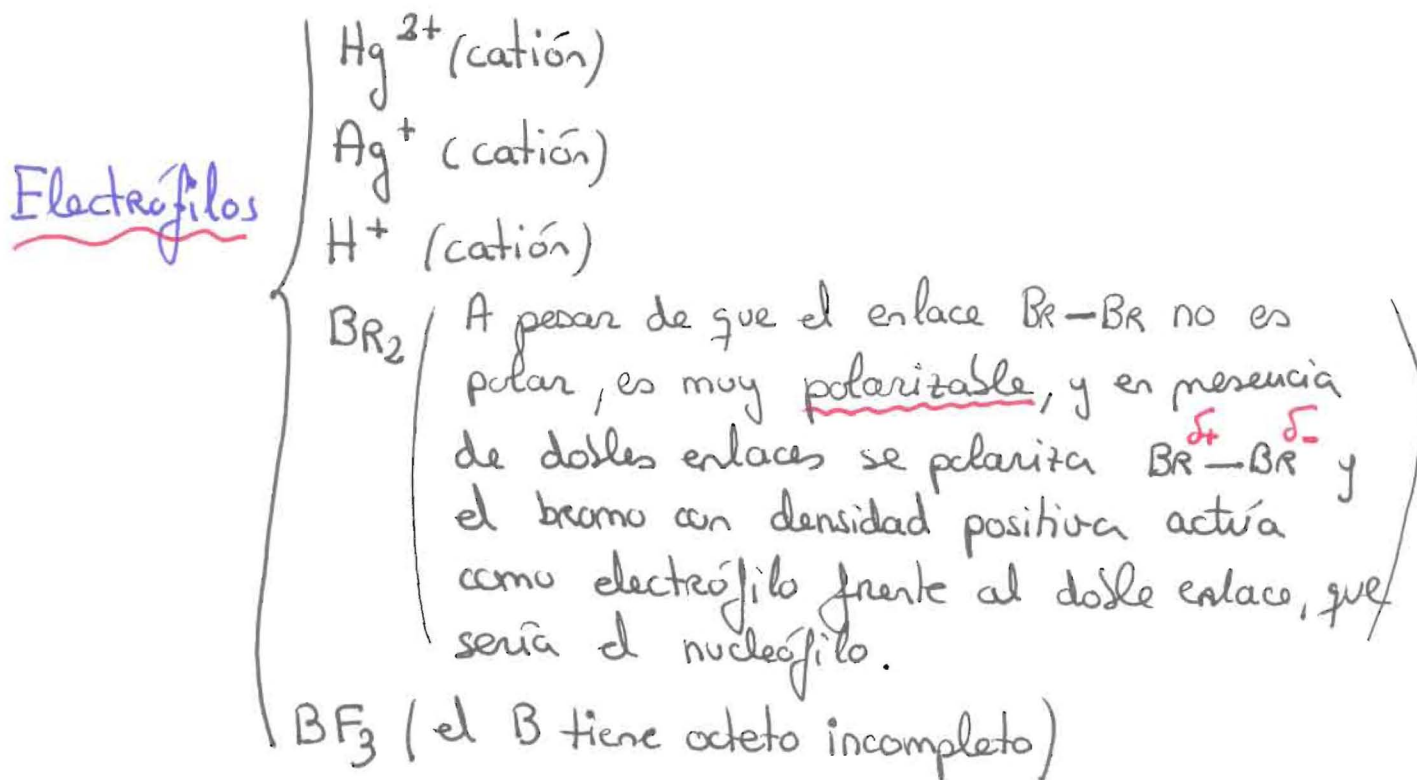 Electrófilos
Hg²⁺ (catión)
Ag⁺ (catión)
H⁺ (catión)
BR₂ (A pesar de que el enlace BR–BR no es
polar, es muy polarizable, y en presencia
de dobles enlaces se polariza BR^δ+–BR^δ- y
el bromo con densidad positiva actúa
como electrófilo frente al doble enlace, que
sería el nucleófilo.)
BF₃ (el B tiene octeto incompleto)